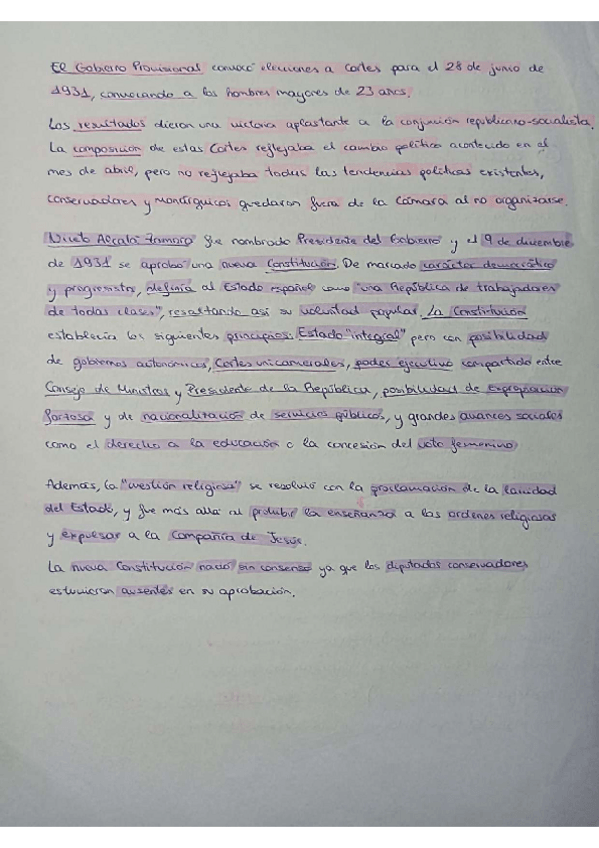 El Gobierno Provisional convocó elecciones a Cortes para el 28 de junio de
1931, convocando a los hombres mayores de 23 años.
Los resultados dieron una victoria aplastante a la conjunción republicano-socialista.
La composición de estas Cortes reflejaba el cambio político acontecido en el
mes de abril, pero no reflejaba todas las tendencias políticas existentes,
conservadores y monárquicos quedaron fuera de la Cámara al no organizarse.
Niceto Alcalá-Zamora fue nombrado Presidente del Gobierno y el 9 de diciembre
de 1931 se aprobó una nueva Constitución. De marcado carácter democrático
y progresista, definía al Estado español como "una República de trabajadores
de todas clases", resaltando así su voluntad popular. La Constitución
establecía los siguientes principios: Estado "integral" pero con posibilidad
de gobiernos autonómicos, Cortes unicamerales, poder ejecutivo compartido entre
Consejo de Ministros y Presidente de la República, posibilidad de expropiación
forzosa y de nacionalización de servicios públicos, y grandes avances sociales
como el derecho a la educación o la concesión del voto femenino.
Además, la "cuestión religiosa" se resolvió con la proclamación de la laicidad
del Estado, y fue más allá al prohibir la enseñanza a las ordenes religiosas
y expulsar a la Compañía de Jesús.
La nueva Constitución nació sin consenso ya que los diputados conservadores
estuvieron ausentes en su aprobación.